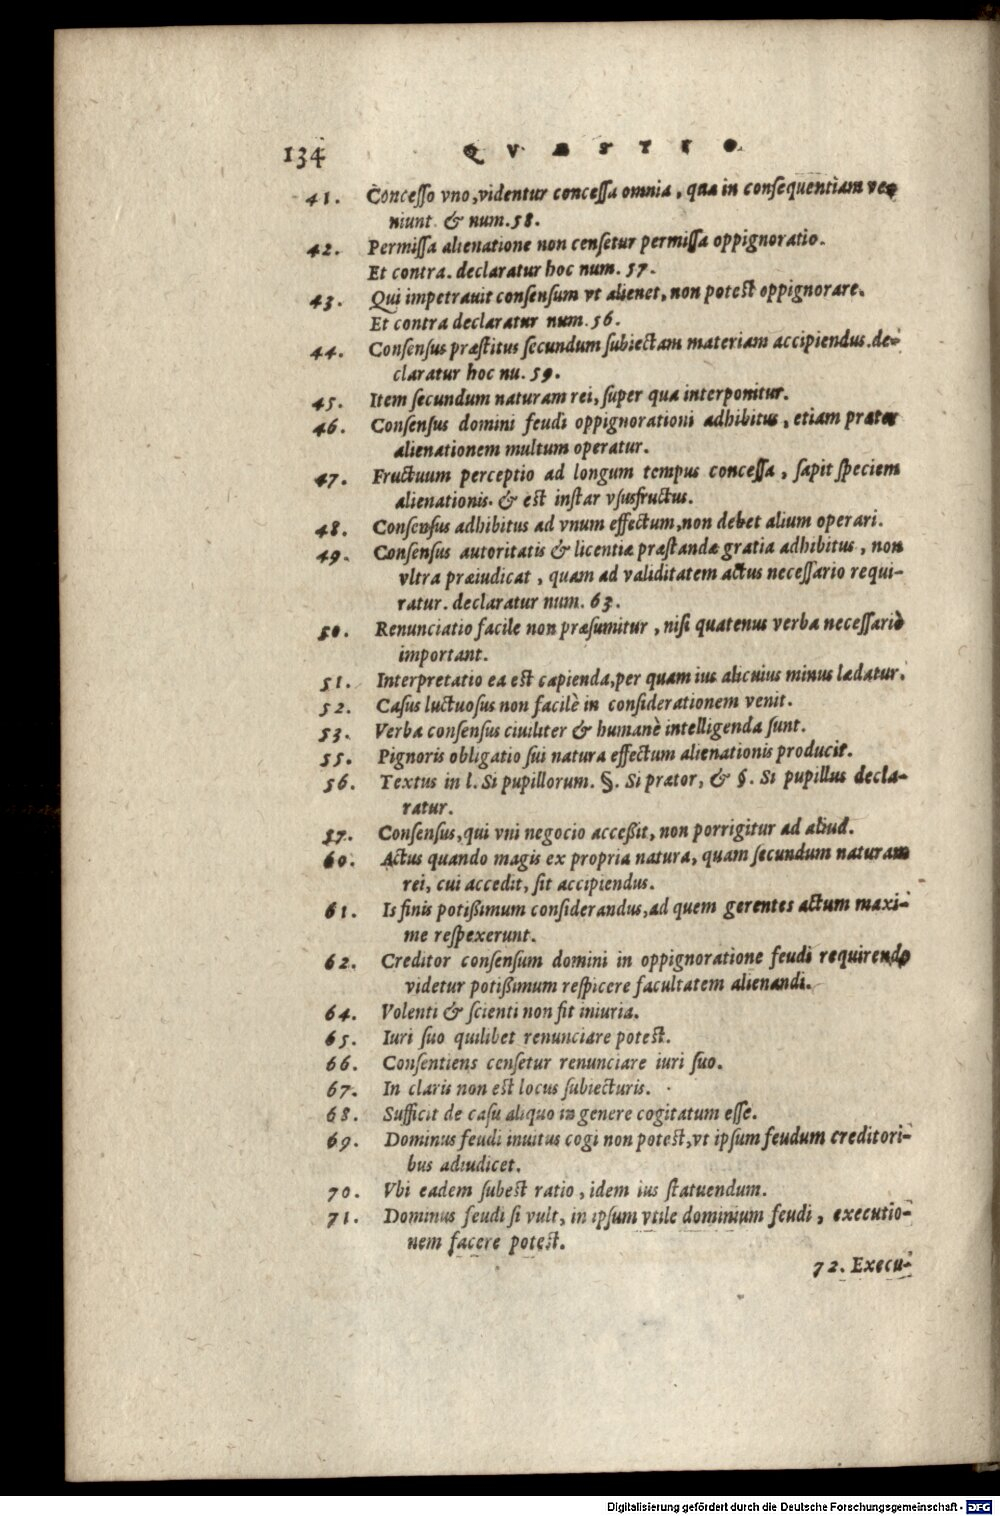 134 QVAESTIO
41. Concesso vno, videntur concessa omnia, qua in consequentiam ve-
niunt. & num. 58.
42. Permissa alienatione non censetur permissa oppignoratio.
Et contra. declaratur hoc num. 57.
43. Qui impetrauit consensum vt alienet, non potest oppignorare.
Et contra declaratur num. 56.
44. Consensus præstitus secundum subiectam materiam accipiendus. de-
claratur hoc nu. 59.
45. Item secundum naturam rei, super qua interponitur.
46. Consensus domini feudi oppignorationi adhibitus, etiam prater
alienationem multum operatur.
47. Fructuum perceptio ad longum tempus concessa, sapit speciem
alienationis. & est instar vsusfructus.
48. Consensus adhibitus ad vnum effectum, non debet alium operari.
49. Consensus autoritatis & licentiæ præstandæ gratia adhibitus, non
vltra præiudicat, quam ad validitatem actus necessario requi-
ratur. declaratur num. 63.
50. Renunciatio facile non præsumitur, nisi quatenus verba necessariò
important.
51. Interpretatio ea est capienda, per quam ius alicuius minus lædatur.
52. Casus luctuosus non facilè in considerationem venit.
53. Verba consensus ciuiliter & humanè intelligenda sunt.
55. Pignoris obligatio sui natura effectum alienationis producit.
56. Textus in l. Si pupillorum. §. Si prætor, & §. Si pupillus decla-
ratur.
57. Consensus, qui vni negocio acceßit, non porrigitur ad aliud.
60. Actus quando magis ex propria natura, quam secundum naturam
rei, cui accedit, sit accipiendus.
61. Is finis potißimum considerandus, ad quem gerentes actum maxi-
me respexerunt.
62. Creditor consensum domini in oppignoratione feudi requirendo
videtur potißimum respicere facultatem alienandi.
64. Volenti & scienti non fit iniuria.
65. Iuri suo quilibet renunciare potest.
66. Consentiens censetur renunciare iuri suo.
67. In claris non est locus subiecturis.
68. Sufficit de casu aliquo in genere cogitatum esse.
69. Dominus feudi inuitus cogi non potest, vt ipsum feudum creditori-
bus adiudicet.
70. Vbi eadem subest ratio, idem ius statuendum.
71. Dominus feudi si vult, in ipsum vtile dominium feudi, executio-
nem facere potest.
72. Execu-
Digitalisierung gefördert durch die Deutsche Forschungsgemeinschaft - DFG